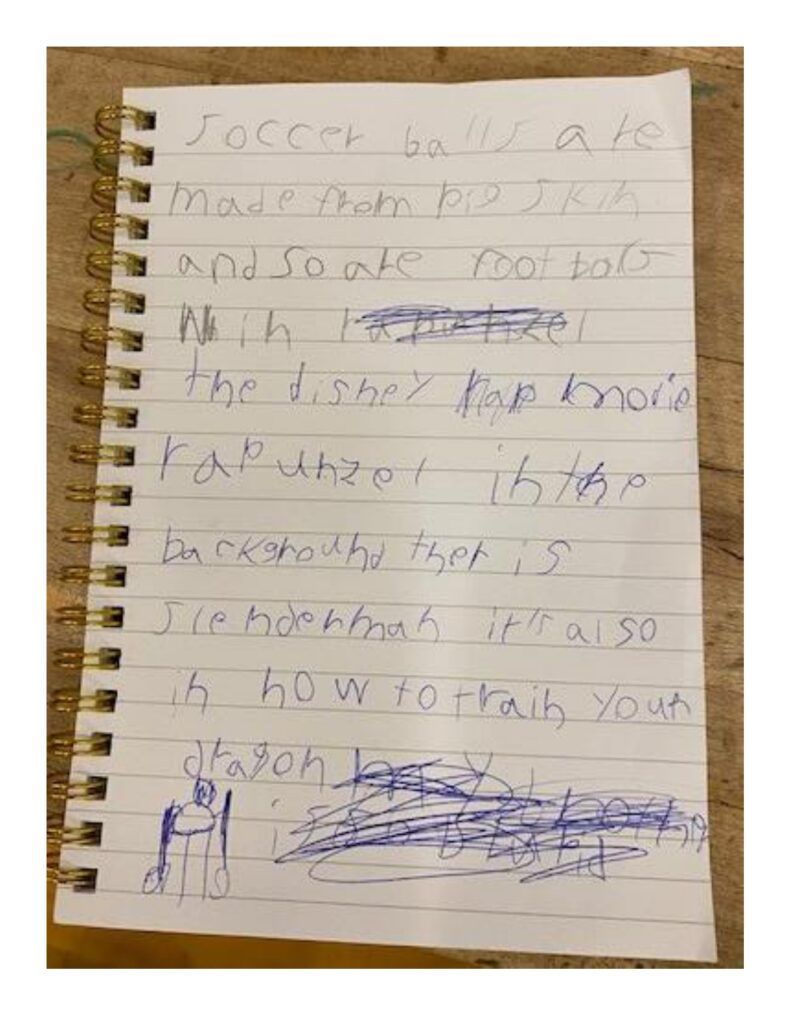 soccer balls are
made from pig skin
and so are footballs
in rapunzel
the disney movie
rapunzel in the
background ther is
slenderman it's also
in how to train your
dragon
is